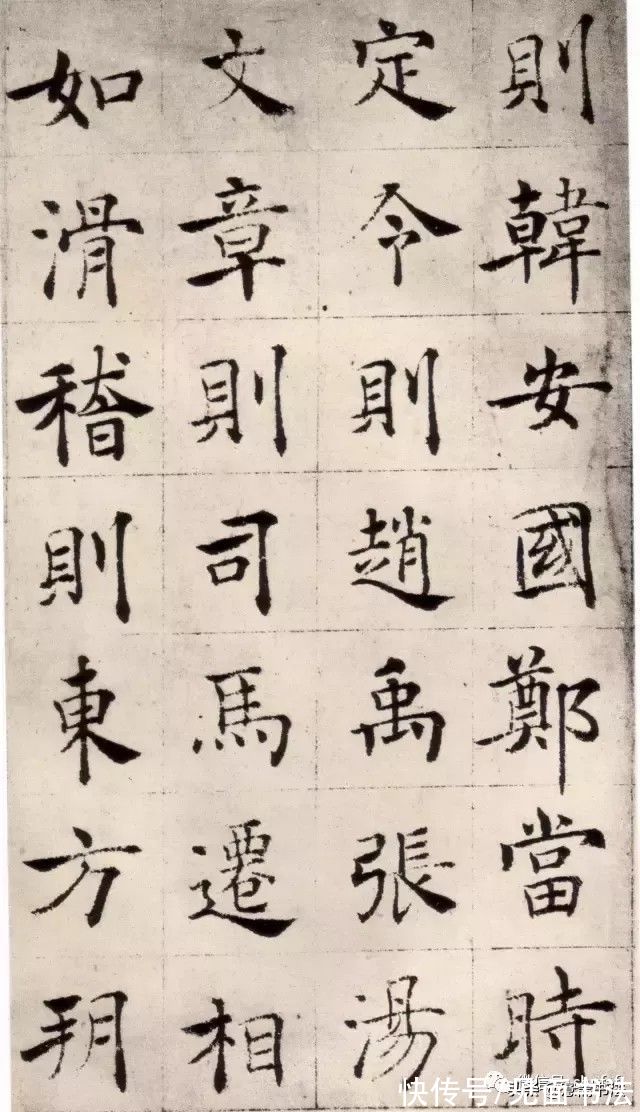 則韓安國鄭當時
定令則趙禹張湯
文章則司馬遷相
如滑稽則東方朔
快传号/见面书法